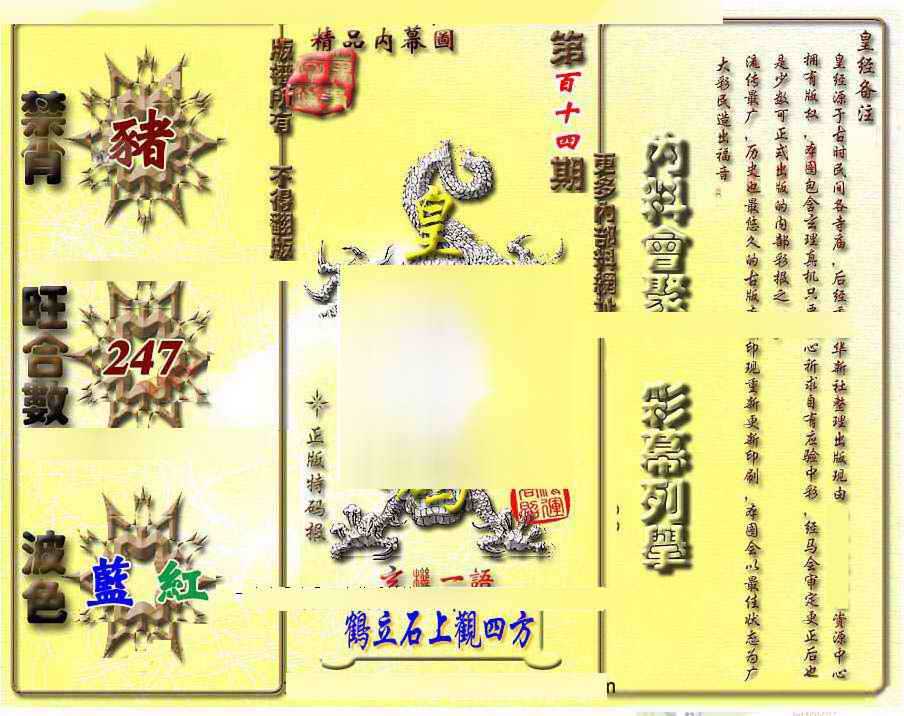 皇经备注
皇经源于古时民间各寺庙,后经
华新社整理出版现由
资源中心
拥有版权,本图包含玄理真机只要
心祈求自有应验中彩,经马会审定更正后也
是少数可正式出版的内部彩报之
流传最广,历史也最悠久的古版
印现重新更新印刷,本图会以最佳状态为广
大彩民造出福音
内料會聚
彩幕列舉
第百十四期
更多內部料網址
精品内幕圖
版權所有 不得翻版
皇
正版特码报
玄機一語
鶴立石上觀四方
禁肖
豬
旺合數
247
波色
藍 紅